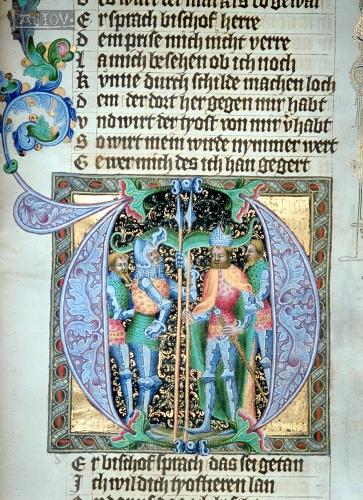 ASTOV
Er sprach bischof herre
dem prise mich nicht verre
La mich besehen ob ich noch
kvnne durch schilde machen loch
dem der dort her gegen mir habt
vnd wirt der trost von mir vhabt
So wirt mein wirde nymmer wert
Ewer mich des ich han gegert
Er bischof sprach das sei getan
Ich wil dich tyostheren lan